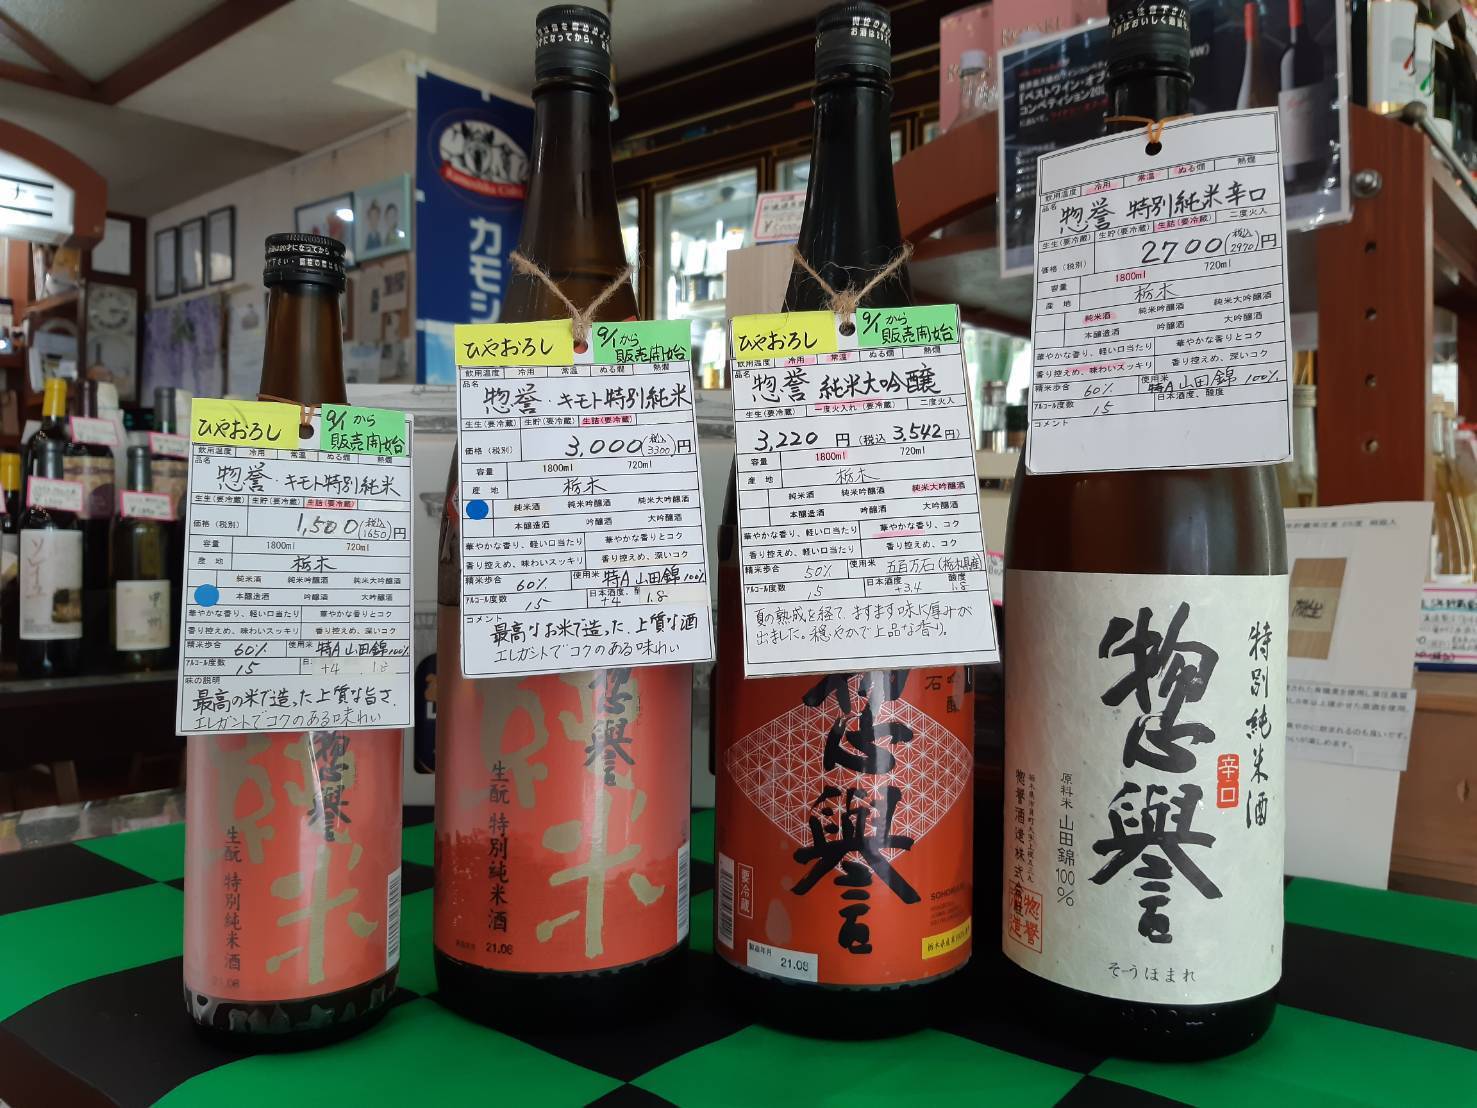 ひやおろし
9/1から
販売開始
飲用温度 冷用 常温 ぬる燗 熱燗
品名
惣誉・キモト特別純米
生生(要冷蔵) 生貯(要冷蔵) 生詰(要冷蔵)
価格(税別) 1,500(税込1650)円
容量 1800ml 720ml
産地 栃木
純米酒 純米吟醸酒 純米大吟醸酒
本醸造酒 吟醸酒 大吟醸酒
華やかな香り、軽い口当たり 華やかな香りとコク
香り控えめ、味わいスッキリ 香り控えめ、深いコク
精米歩合 60% 使用米 特A山田錦100%
アルコール度数 15 +4 1.8
味の説明
最高の米で造った上質な旨さ、
エレガントでコクのある味わい
惣誉
純米
生酛 特別純米酒
ひやおろし
9/1から
販売開始
飲用温度 冷用 常温 ぬる燗 熱燗
品名
惣誉・キモト特別純米
生生(要冷蔵) 生貯(要冷蔵) 生詰(要冷蔵)
価格(税別) 3,000(税込3300)円
容量 1800ml 720ml
産地 栃木
純米酒 純米吟醸酒 純米大吟醸酒
本醸造酒 吟醸酒 大吟醸酒
華やかな香り、軽い口当たり 華やかな香りとコク
香り控えめ、味わいスッキリ 香り控えめ、深いコク
精米歩合 60% 使用米 特A山田錦100%
アルコール度数 15 +4 1.8
コメント
最高なお米で造った、上質な酒
エレガントでコクのある味わい
惣誉
純米
生酛 特別純米酒
21.08
ひやおろし
9/1から
販売開始
飲用温度 冷用 常温 ぬる燗 熱燗
品名
惣誉 純米大吟醸
生生(要冷蔵) 一度火入れ(要冷蔵) 二度火入
3,220円(税込3,542円)
容量 1800ml 720ml
産地 栃木
純米酒 純米吟醸酒 純米大吟醸酒
本醸造酒 吟醸酒 大吟醸酒
華やかな香り、軽い口当たり 華やかな香り、コク
香り控えめ、味わいスッキリ 香り控えめ、コク
精米歩合 50% 使用米 五百万石(栃木県産)
アルコール度数 15 日本酒度 +3.4 酸度 1.8
夏の熟成を経て、ますます味に厚みが
出ました。穏やかで上品な香り。
惣誉
要冷蔵
製造年月
21.08
飲用温度 冷用 常温 ぬる燗 熱燗
品名
惣誉 特別純米辛口
生生(要冷蔵) 生貯(要冷蔵) 生詰(要冷蔵) 二度火入
価格(税別) 2700(税込2970)円
容量 1800ml 720ml
産地 栃木
純米酒 純米吟醸酒 純米大吟醸酒
本醸造酒 吟醸酒 大吟醸酒
華やかな香り、軽い口当たり 華やかな香りとコク
香り控えめ、味わいスッキリ 香り控えめ、深いコク
精米歩合 60% 使用米 特A山田錦100%
アルコール度数 15 日本酒度、酸度
コメント
特別純米酒
辛口
惣譽
原料米 山田錦100%
惣譽酒造株式会社
そうほまれ
カモシ